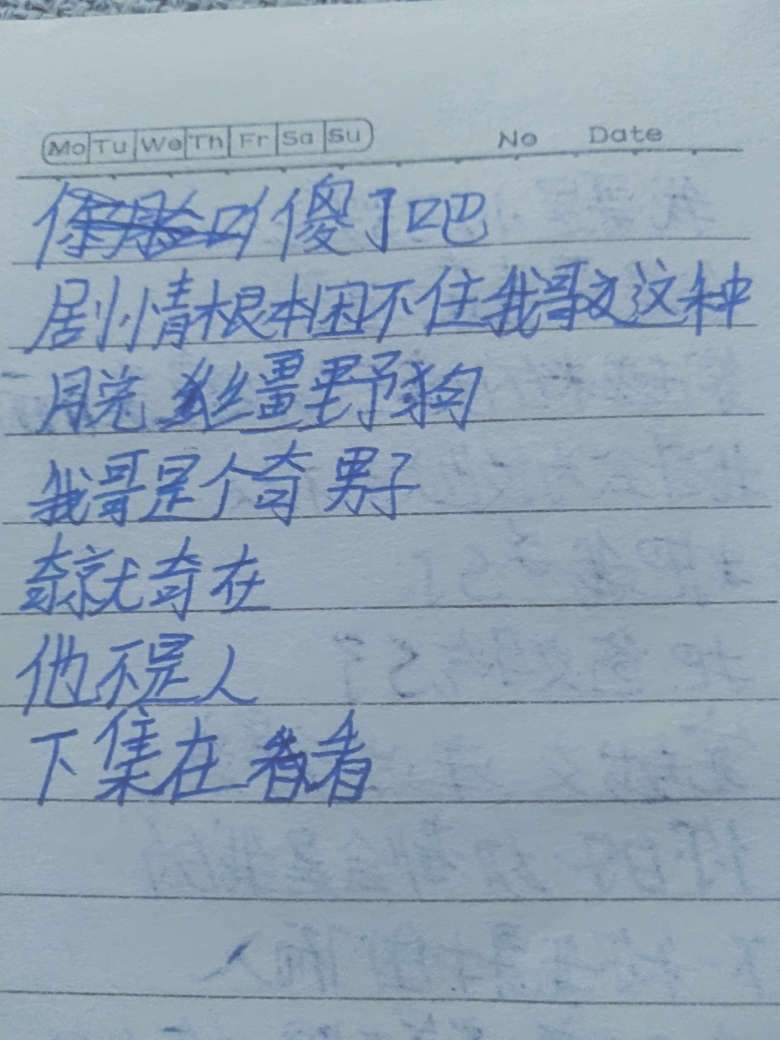 Mo Tu We Th Fr Sa Su No Date
傻了吧
剧情根本困不住我哥这种
脱缰野狗
我哥是个奇男子
奇就奇在
他不是人
下集在看